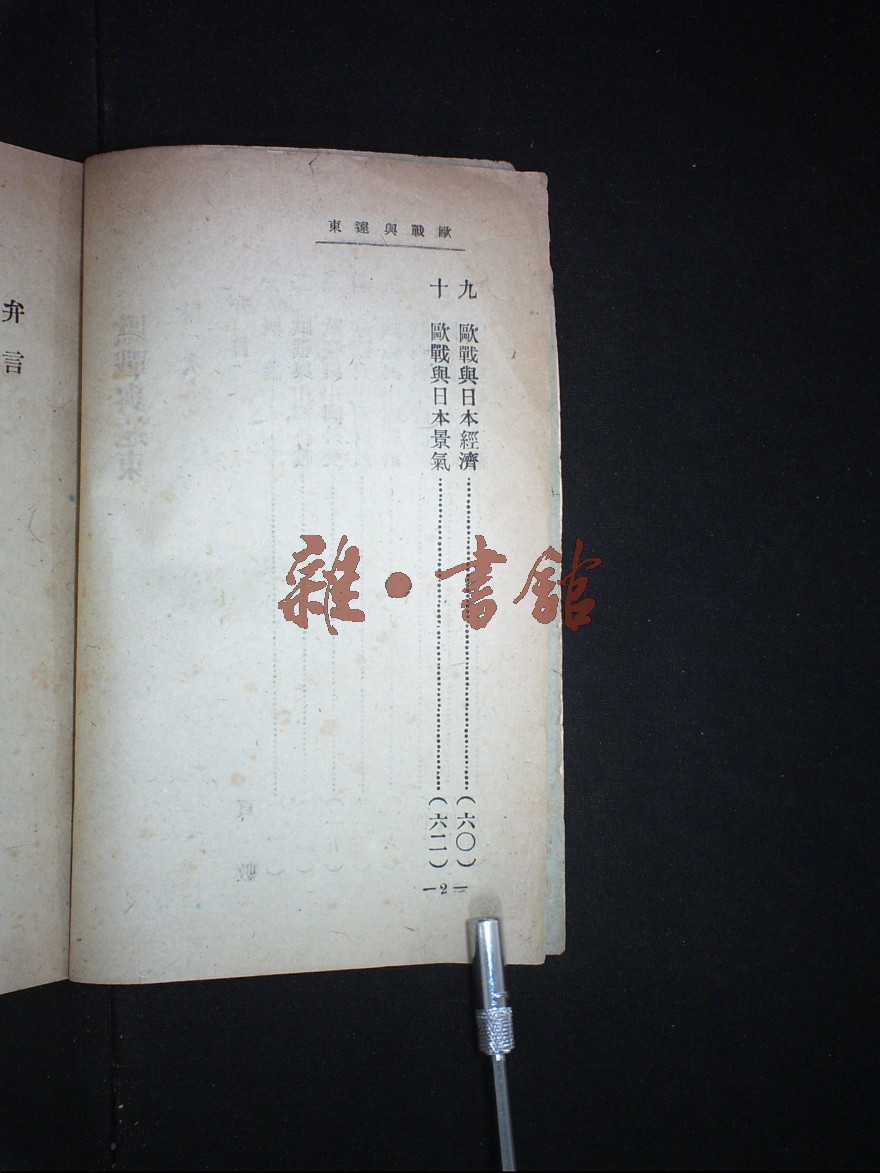 歐戰與遠東
九　歐戰與日本經濟……(六〇)
十　歐戰與日本景氣……(六二)
—2—
弁言
雜•書館